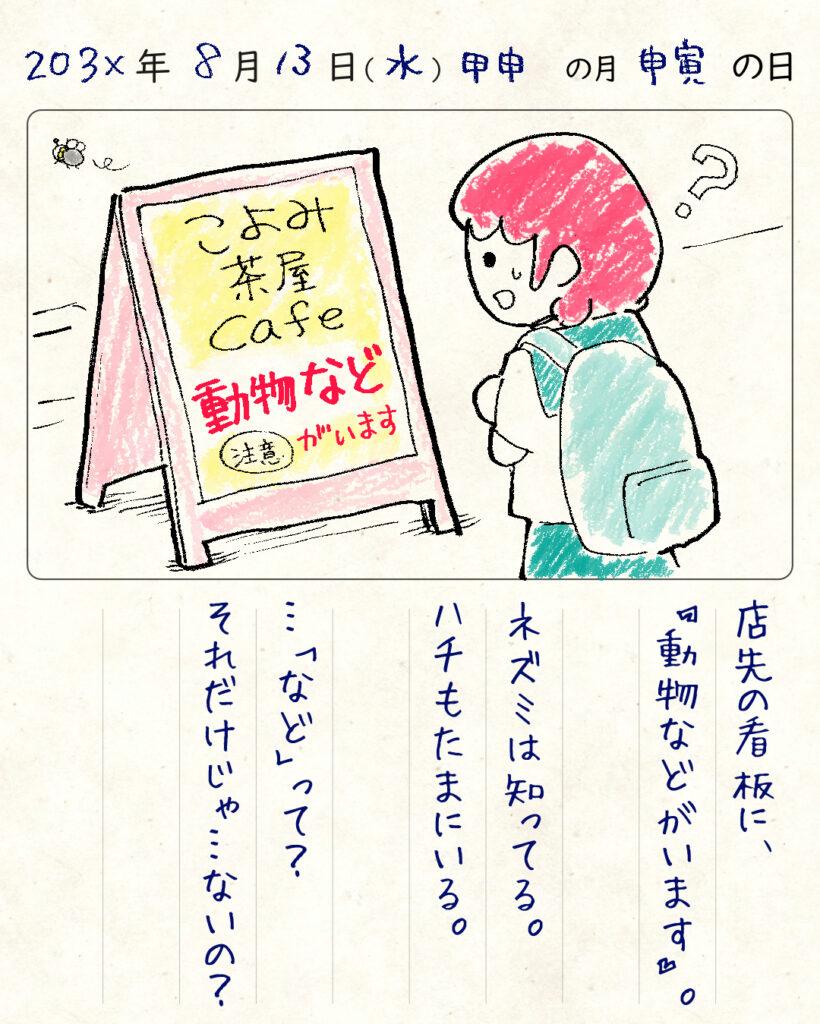 203x年 8月13日(水) 甲申 の月 申寅 の日
こよみ
茶屋
Cafe
動物など
注意 がいます
?
店先の看板に、
『動物などがいます』。
ネズミは知ってる。
ハチもたまにいる。
…「など」って?
それだけじゃ…ないの?